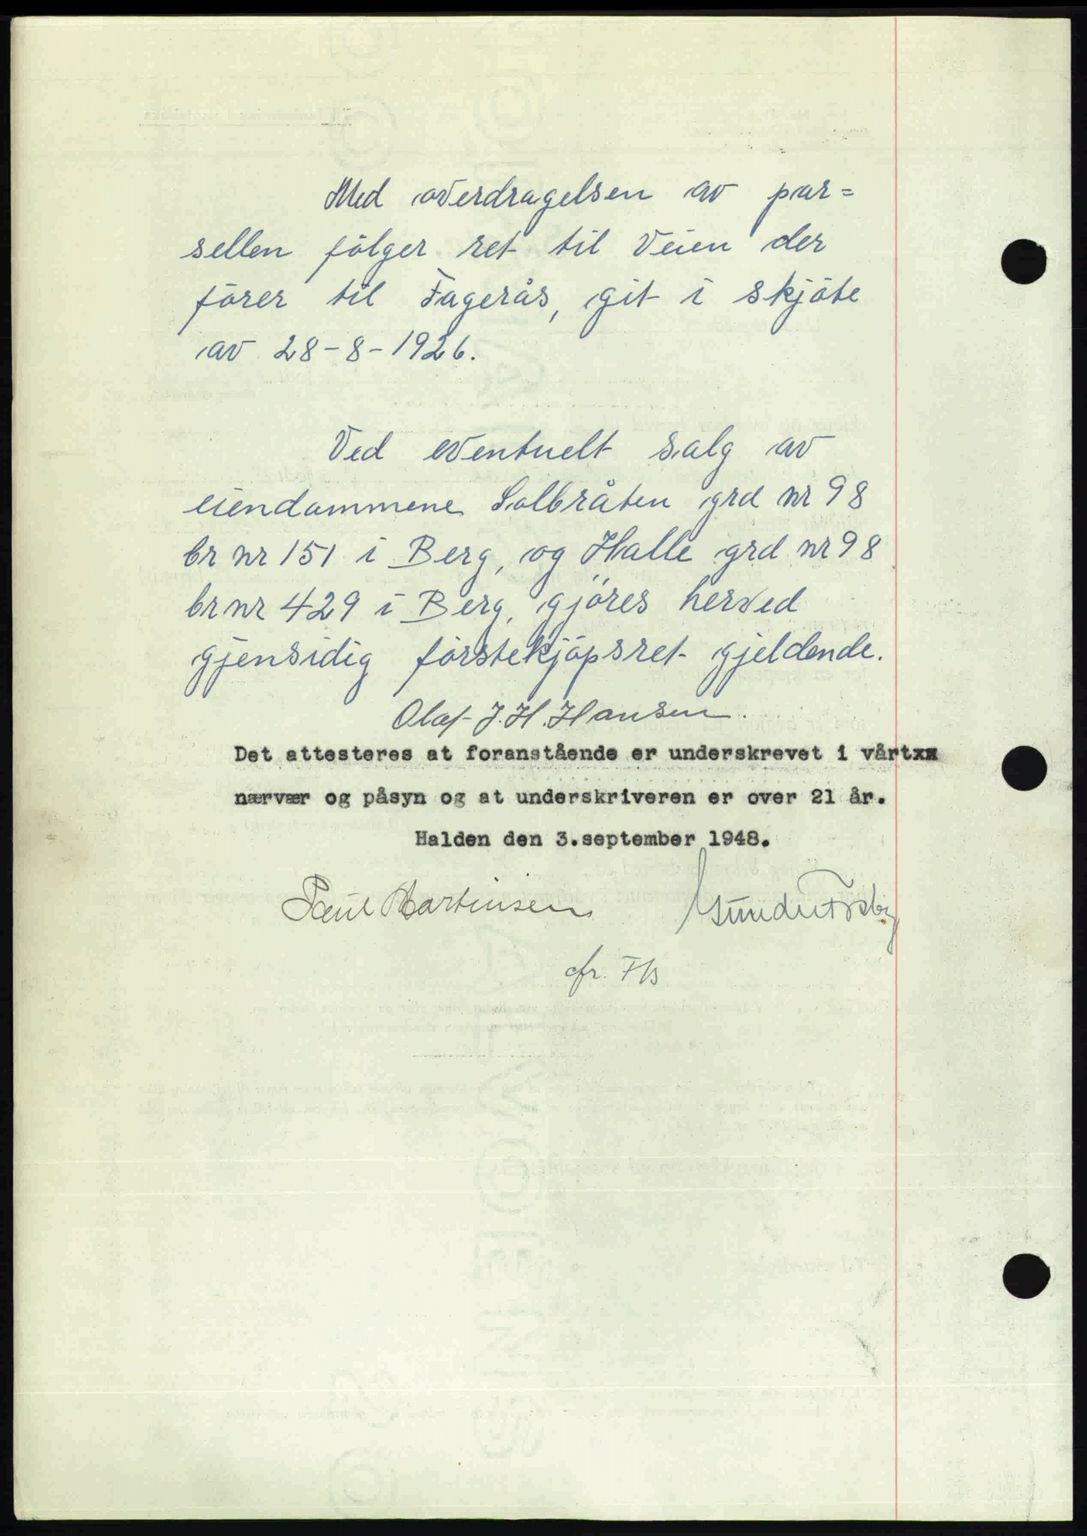 Med overdragelsen av par=
sellen følger ret til Veien der
fører til Fagerås, git i skjøte
av 28-8-1926.
Ved eventuelt salg av
eiendommene Solbråten grd nr 98
br nr 151 i Berg, og Halle grd nr 98
br nr 429 i Berg, gjøres herved
gjensidig førstekjøpsret gjeldende.
Olaf J. H. Hansen.
Det attesteres at foranstående er underskrevet i vårtxx
nærvær og påsyn og at underskriveren er over 21 år.
Halden den 3.september 1948.
Paul Martinsen
cfr.